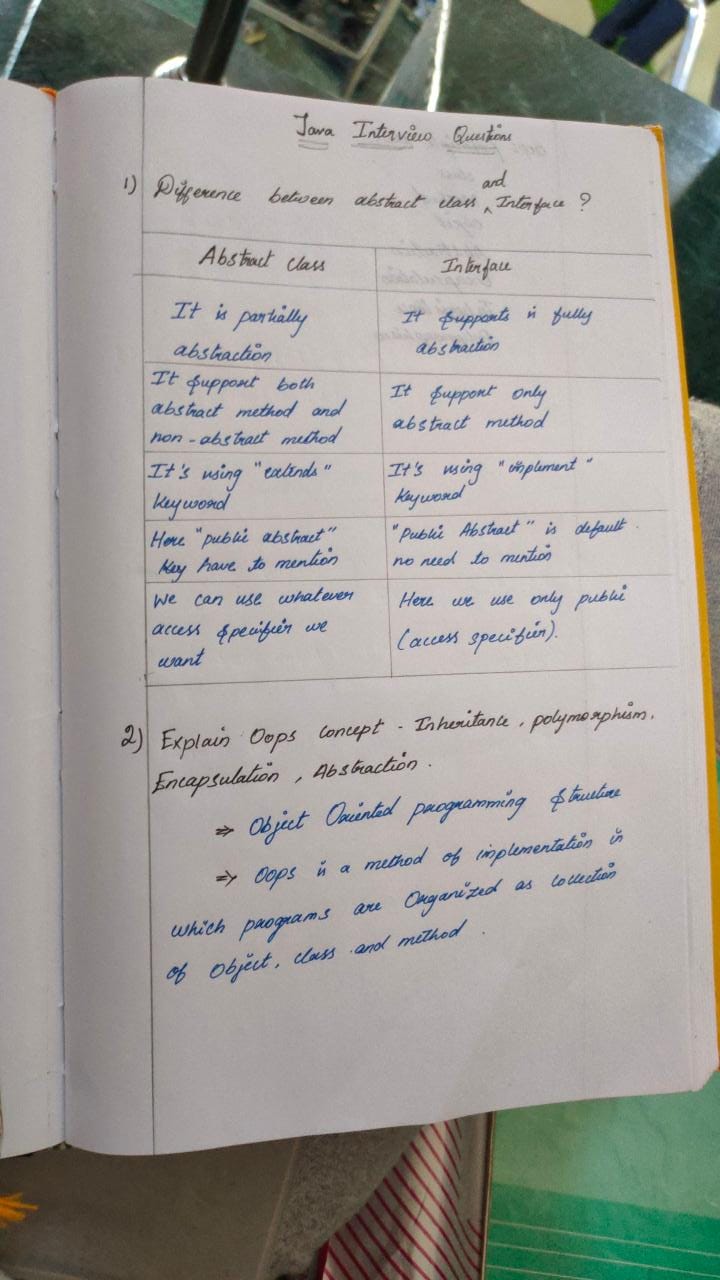 Java Interview Questions
1) Difference between abstract class and Interface ?
Abstract class
Interface
It is partially
abstraction
It supports is fully
abstraction
It support both
abstract method and
non-abstract method
It support only
abstract method
It's using "extends"
keyword
It's using "implement"
keyword
Here "public abstract"
key have to mention
"Public Abstract" is default.
no need to mention
We can use whatever
access specifier we
want
Here we use only public
(access specifier).
2) Explain Oops concept - Inheritance, polymorphism,
Encapsulation, Abstraction.
⇒ Object Oriented programming structure
⇒ Oops is a method of implementation in
which programs are Organized as collection
of object, class and method.